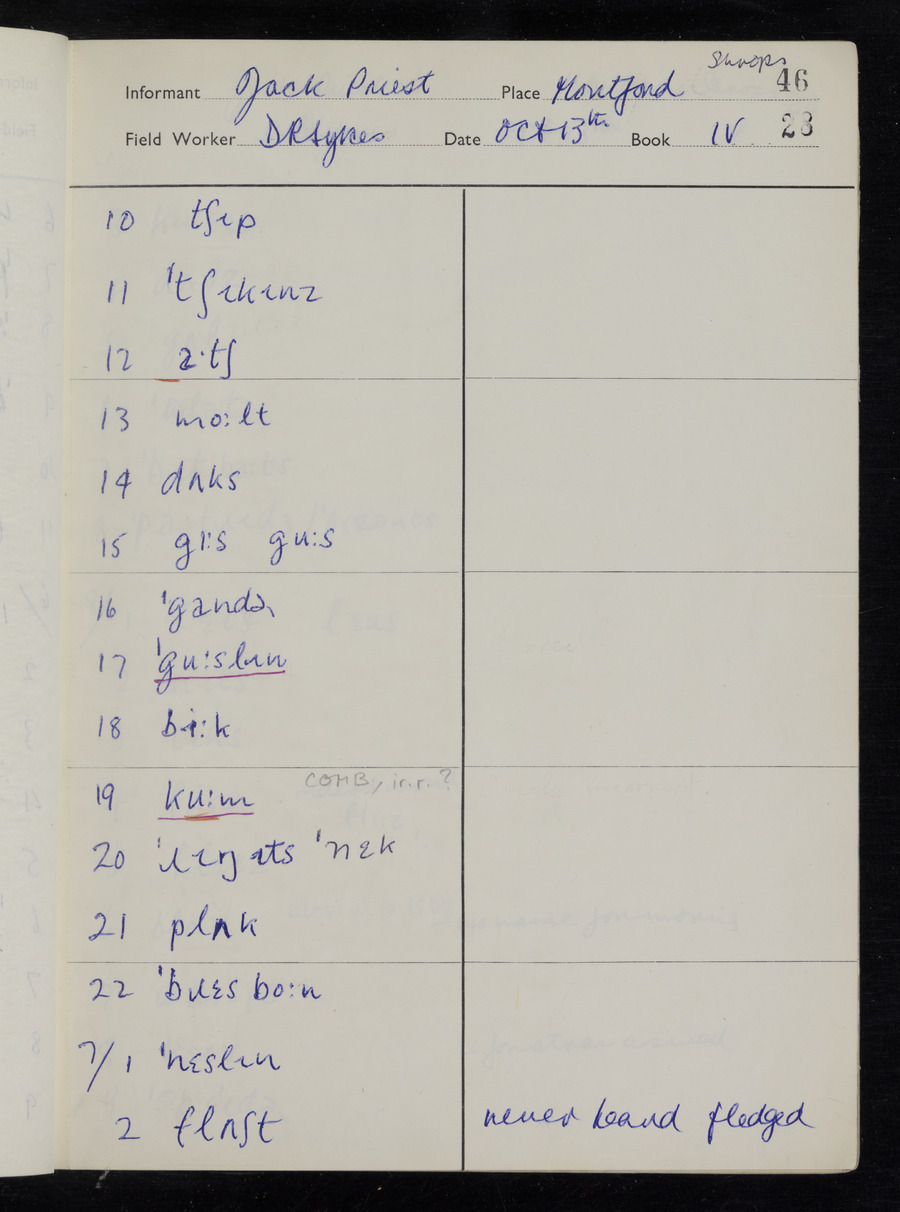 Shrops
Informant Jack Priest Place Montford 46
Field Worker DRSykes Date Oct 13th Book IV 28
10 tʃɩp
11 ˈtʃɩkɩnz
12 aˑtʃ
13 mɔːlt
14 dʌks
15 gɪːs guːs
16 ˈgandəɹ
17 ˈguːslɩn
18 bɪːk
19 kuːm COMB, i.r.?
20 ˈɹɩŋ ɩts ˈnɛk
21 plʌk
22 ˈbɹɛs boːn
7/1 ˈnɛslɩn
2 flʌʃt never heard fledged